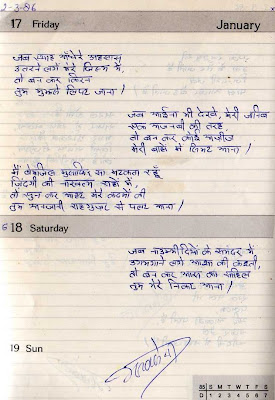 2-3-86
17 Friday
January
जब स्याह अंधेरे अहसास
उतरने लगे मेरे जिस्म में,
तो बन कर किरन
तुम मुझसे लिपट जाना !
जब आईना भी देखे, मेरी जानिब
एक अजनबी की तरह
तो बन कर कोई अज़ीज़
मेरी बाहों में सिमट आना !
मैं बेमंज़िल मुसाफिर सा भटकता रहूँ
ज़िंदगी की नाकाम राहों में,
तो सुन कर आहट मेरे कदमों की
तुम अनजानी राहगुज़र से पलट आना !
6
18 Saturday
जब नाउम्मीदियों के समंदर में
डगमगाने लगे आशा की कश्ती,
तो बन कर आस का साहिल
तुम मेरे निकट आना !
19 Sun
85 S M T W T F S
D 1 2 3 4 5 6 7